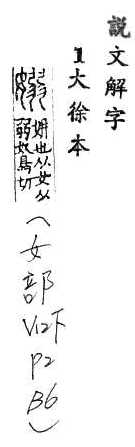 說文解字
1大徐本
嫋 姌也从女从
弱奴鳥切
(女部V12下P2B6)